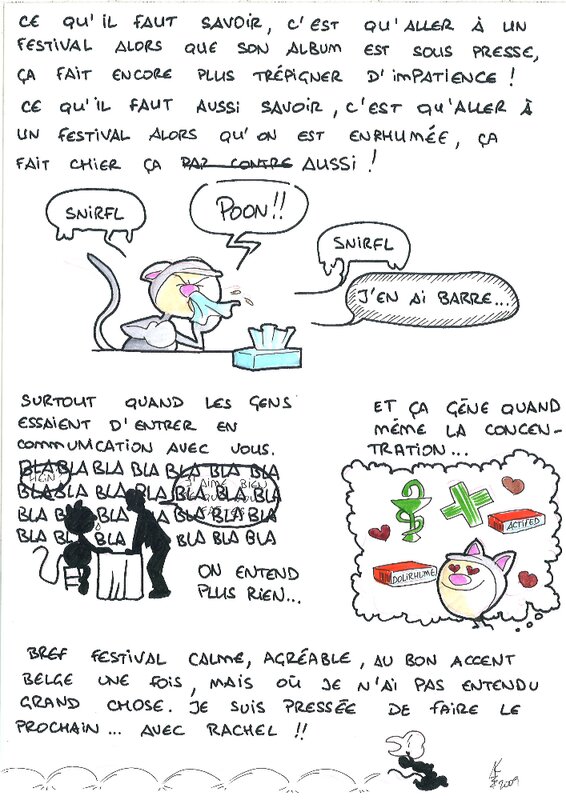 CE QU'IL FAUT SAVOIR, C'EST QU'ALLER À UN
FESTIVAL ALORS QUE SON ALBUM EST SOUS PRESSE,
ÇA FAIT ENCORE PLUS TRÉPIGNER D'IMPATIENCE !
CE QU'IL FAUT AUSSI SAVOIR, C'EST QU'ALLER À
UN FESTIVAL ALORS QU'ON EST ENRHUMÉE, ÇA
FAIT CHIER ÇA PAR CONTRE AUSSI !
SNIRFL
POON!!
SNIRFL
J'EN AI BARRE...
SURTOUT QUAND LES GENS
ESSAIENT D'ENTRER EN
COMMUNICATION AVEC VOUS.
BLA BLA BLA BLA BLA BLA BLA
BLA BLA BLA BLA BLA BLA BLA
BLA BLA BLA BLA BLA BLA
BLA BLA BLA BLA BLA
J'AIME BIEN
CE QUE VOUS
FAITES
ON ENTEND
PLUS RIEN...
ET ÇA GÊNE QUAND
MÊME LA CONCEN-
TRATION...
ACTIFED
DOLIRHUME
BREF FESTIVAL CALME, AGRÉABLE, AU BON ACCENT
BELGE UNE FOIS, MAIS OÙ JE N'AI PAS ENTENDU
GRAND CHOSE. JE SUIS PRESSÉE DE FAIRE LE
PROCHAIN... AVEC RACHEL !!
2009